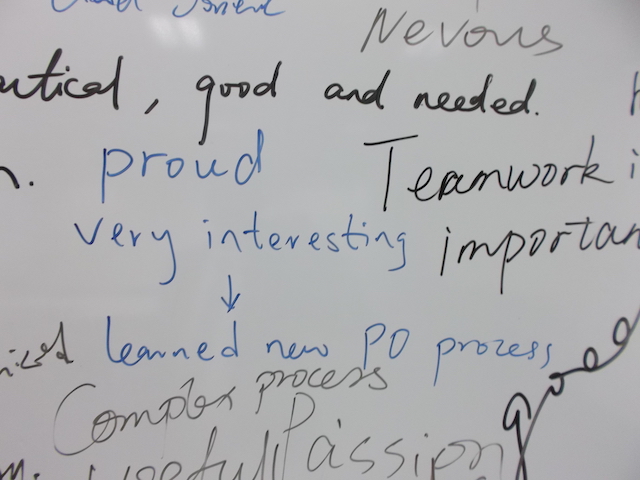 Nevous
, good and needed.
proud
Teamwork
very interesting
important
↓
learned new PO prozess
Complex process
good
Usefull
Passion